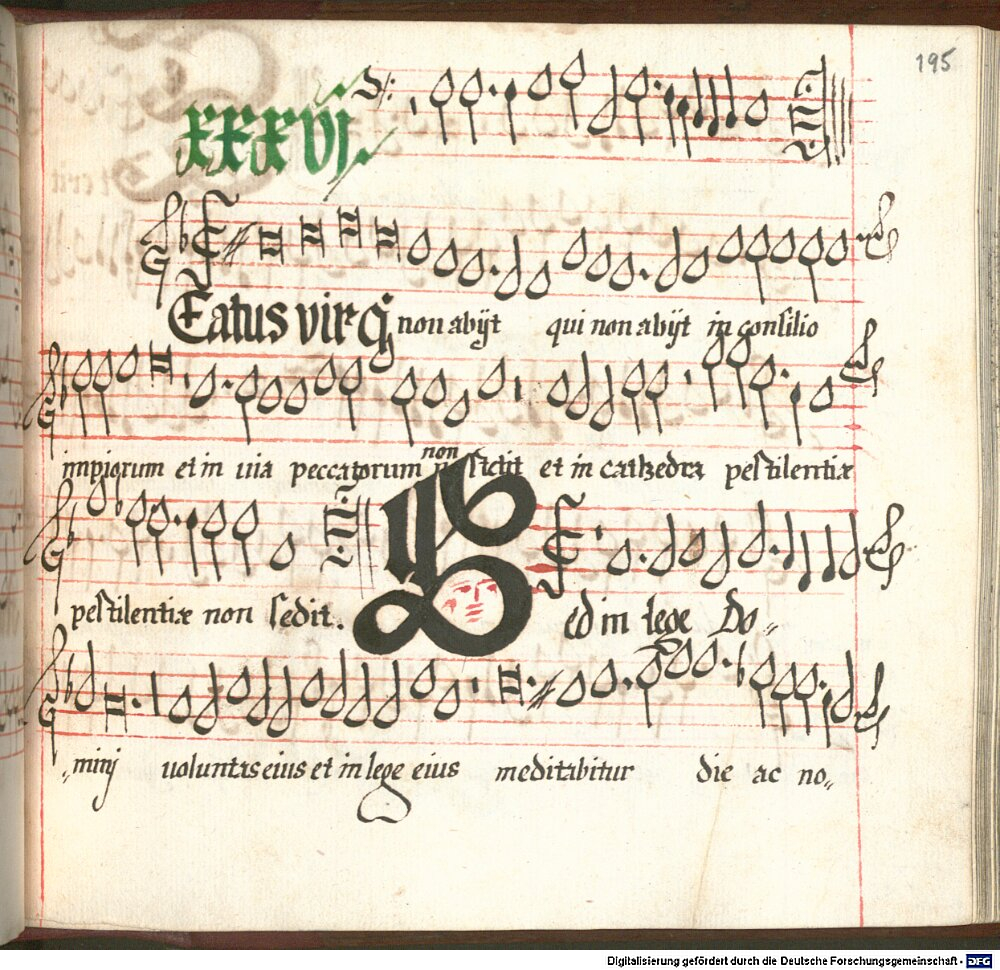 195
xxxvj.
Eatus vir q̃ non abijt qui non abijt in consilio
impiorum et in uia peccatorum non stetit et in cathedra pestilentiæ
pestilentiæ non sedit. Sed in lege Do„
„minj uoluntas eius et in lege eius meditabitur die ac no„
Digitalisierung gefördert durch die Deutsche Forschungsgemeinschaft - DFG